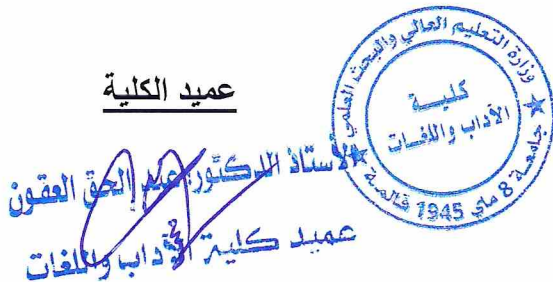 عميد الكلية
وزارة التعليم العالي والبحث العلمي
كليـــة
الآداب واللغـات
★ جامعـة 8 ماي 1945 قالمـة ★
الأستاذ الدكتور: عبد الحق العقون
عميد كلية الآداب واللغات